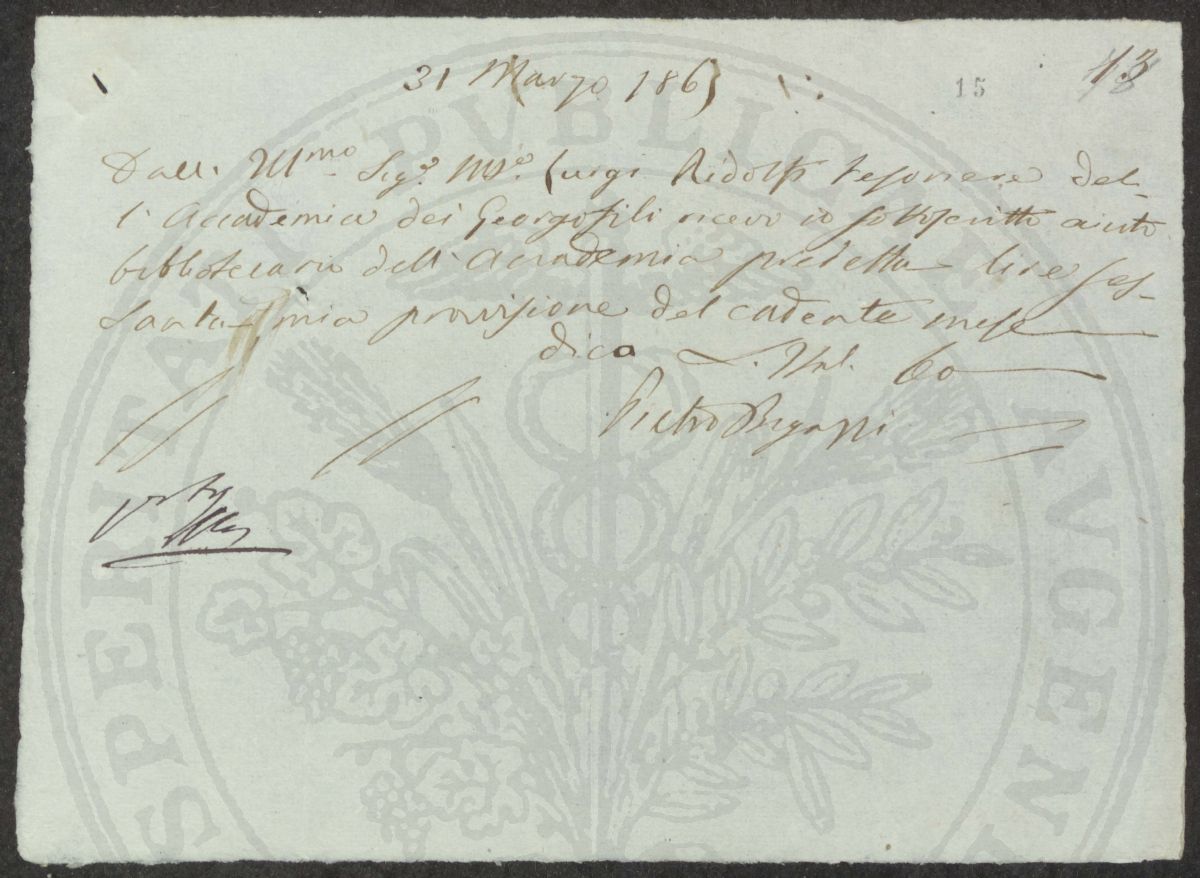 31 Marzo 1865
15
13
Dall' Ill.mo Sig.r M.se Luigi Ridolfi Tesoriere del-
l'Accademia dei Georgofili ricevo io sottoscritto aiuto
bibliotecario dell'Accademia predetta lire ses-
santa mia provvisione del cadente mese
dico L. Ital. 60
Pietro Bigazzi
PROSPERITATI PVBLICAE AVGENDAE